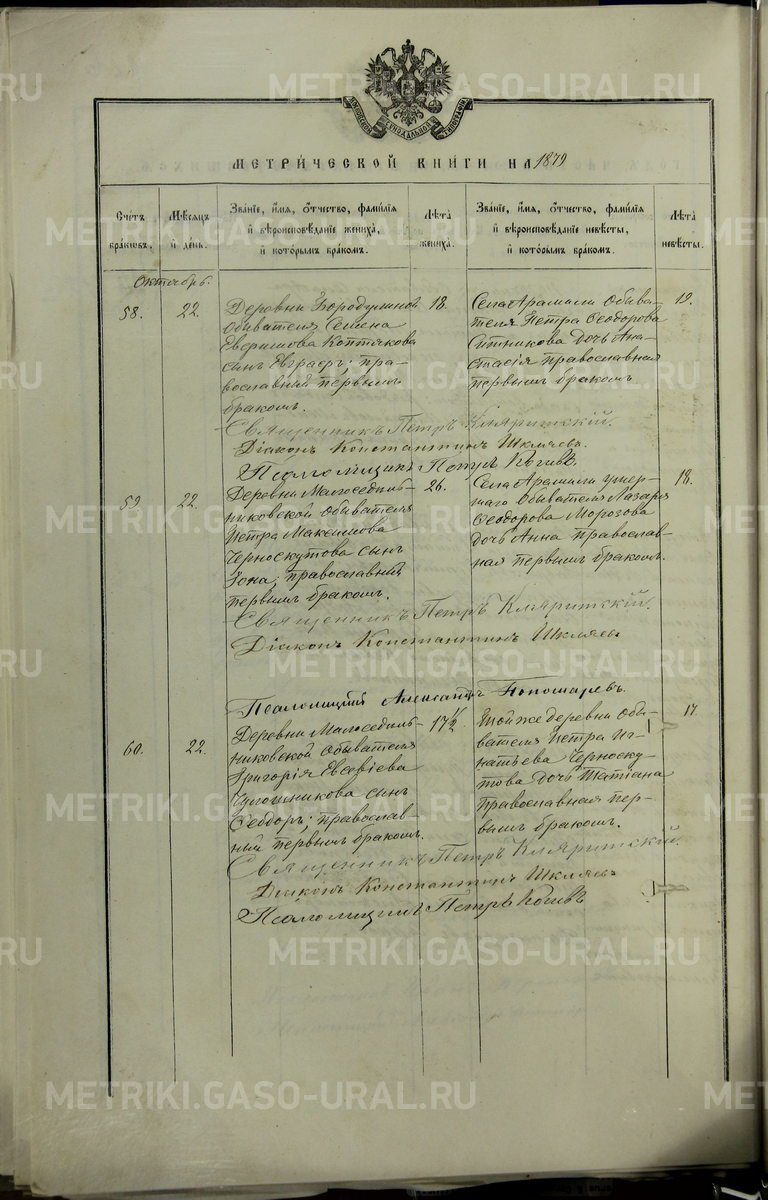 METRIKI.GASO-URAL.RU
МОСКОВСКОЙ СѴНОДАЛЬНОЙ ТИПОГРАФІИ
МЕТРИ́ЧЕСКОЙ КНИГИ НА 1879
Сче́тъ бра́ковъ.
Мѣ́сяцъ и҆ де́нь.
Зва́ніе, и҆́мя, ѻ҆́тчество, фами́лія и҆ вѣроисповѣ́даніе жениха̀, и҆ кото́рымъ бра́комъ.
Лѣ́та жениха̀.
Зва́ніе, и҆́мя, ѻ҆́тчество, фами́лія и҆ вѣроисповѣ́даніе невѣ́сты, и҆ кото́рымъ бра́комъ.
Лѣ́та невѣ́сты.
Октябрь.
58.
22.
Деревни Бородулиной
обывателя Семена
Евфимова Коптякова
сынъ Евграфъ; пра-
вославный первымъ
бракомъ.
18.
Села Арамили обыва-
теля Петра Ѳеодорова
Ситникова дочь Ана-
стасія православная
первымъ бракомъ
19.
Священникъ Петръ Кляритскій.
Діаконъ Константинъ Шкляевъ.
Псаломщикъ Петръ
59
22.
Деревни Малоседель-
никовской обывателя
Петра Максимова
Черноскутова сынъ
Іона; православный
первымъ бракомъ.
26.
Села Арамили умер-
шаго обывателя Лазаря
Ѳеодорова Морозова
дочь Анна православ-
ная первымъ бракомъ.
18.
Священникъ Петръ Кляритскій.
Діаконъ Константинъ Шкляевъ
Псаломщикъ Александръ Пономаревъ.
60.
22.
Деревни Малоседель-
никовской обывателя
Григорія Евсевіева
сынъ
Ѳеодоръ; православ-
ный первымъ бракомъ.
17 1/2
Той же деревни обы-
вателя Петра Иг-
натьева Черноску-
това дочь Татіана
православная пер-
вымъ бракомъ.
17.
Священникъ Петръ Кляритскій.
Діаконъ Константинъ Шкляевъ
Псаломщикъ Петръ